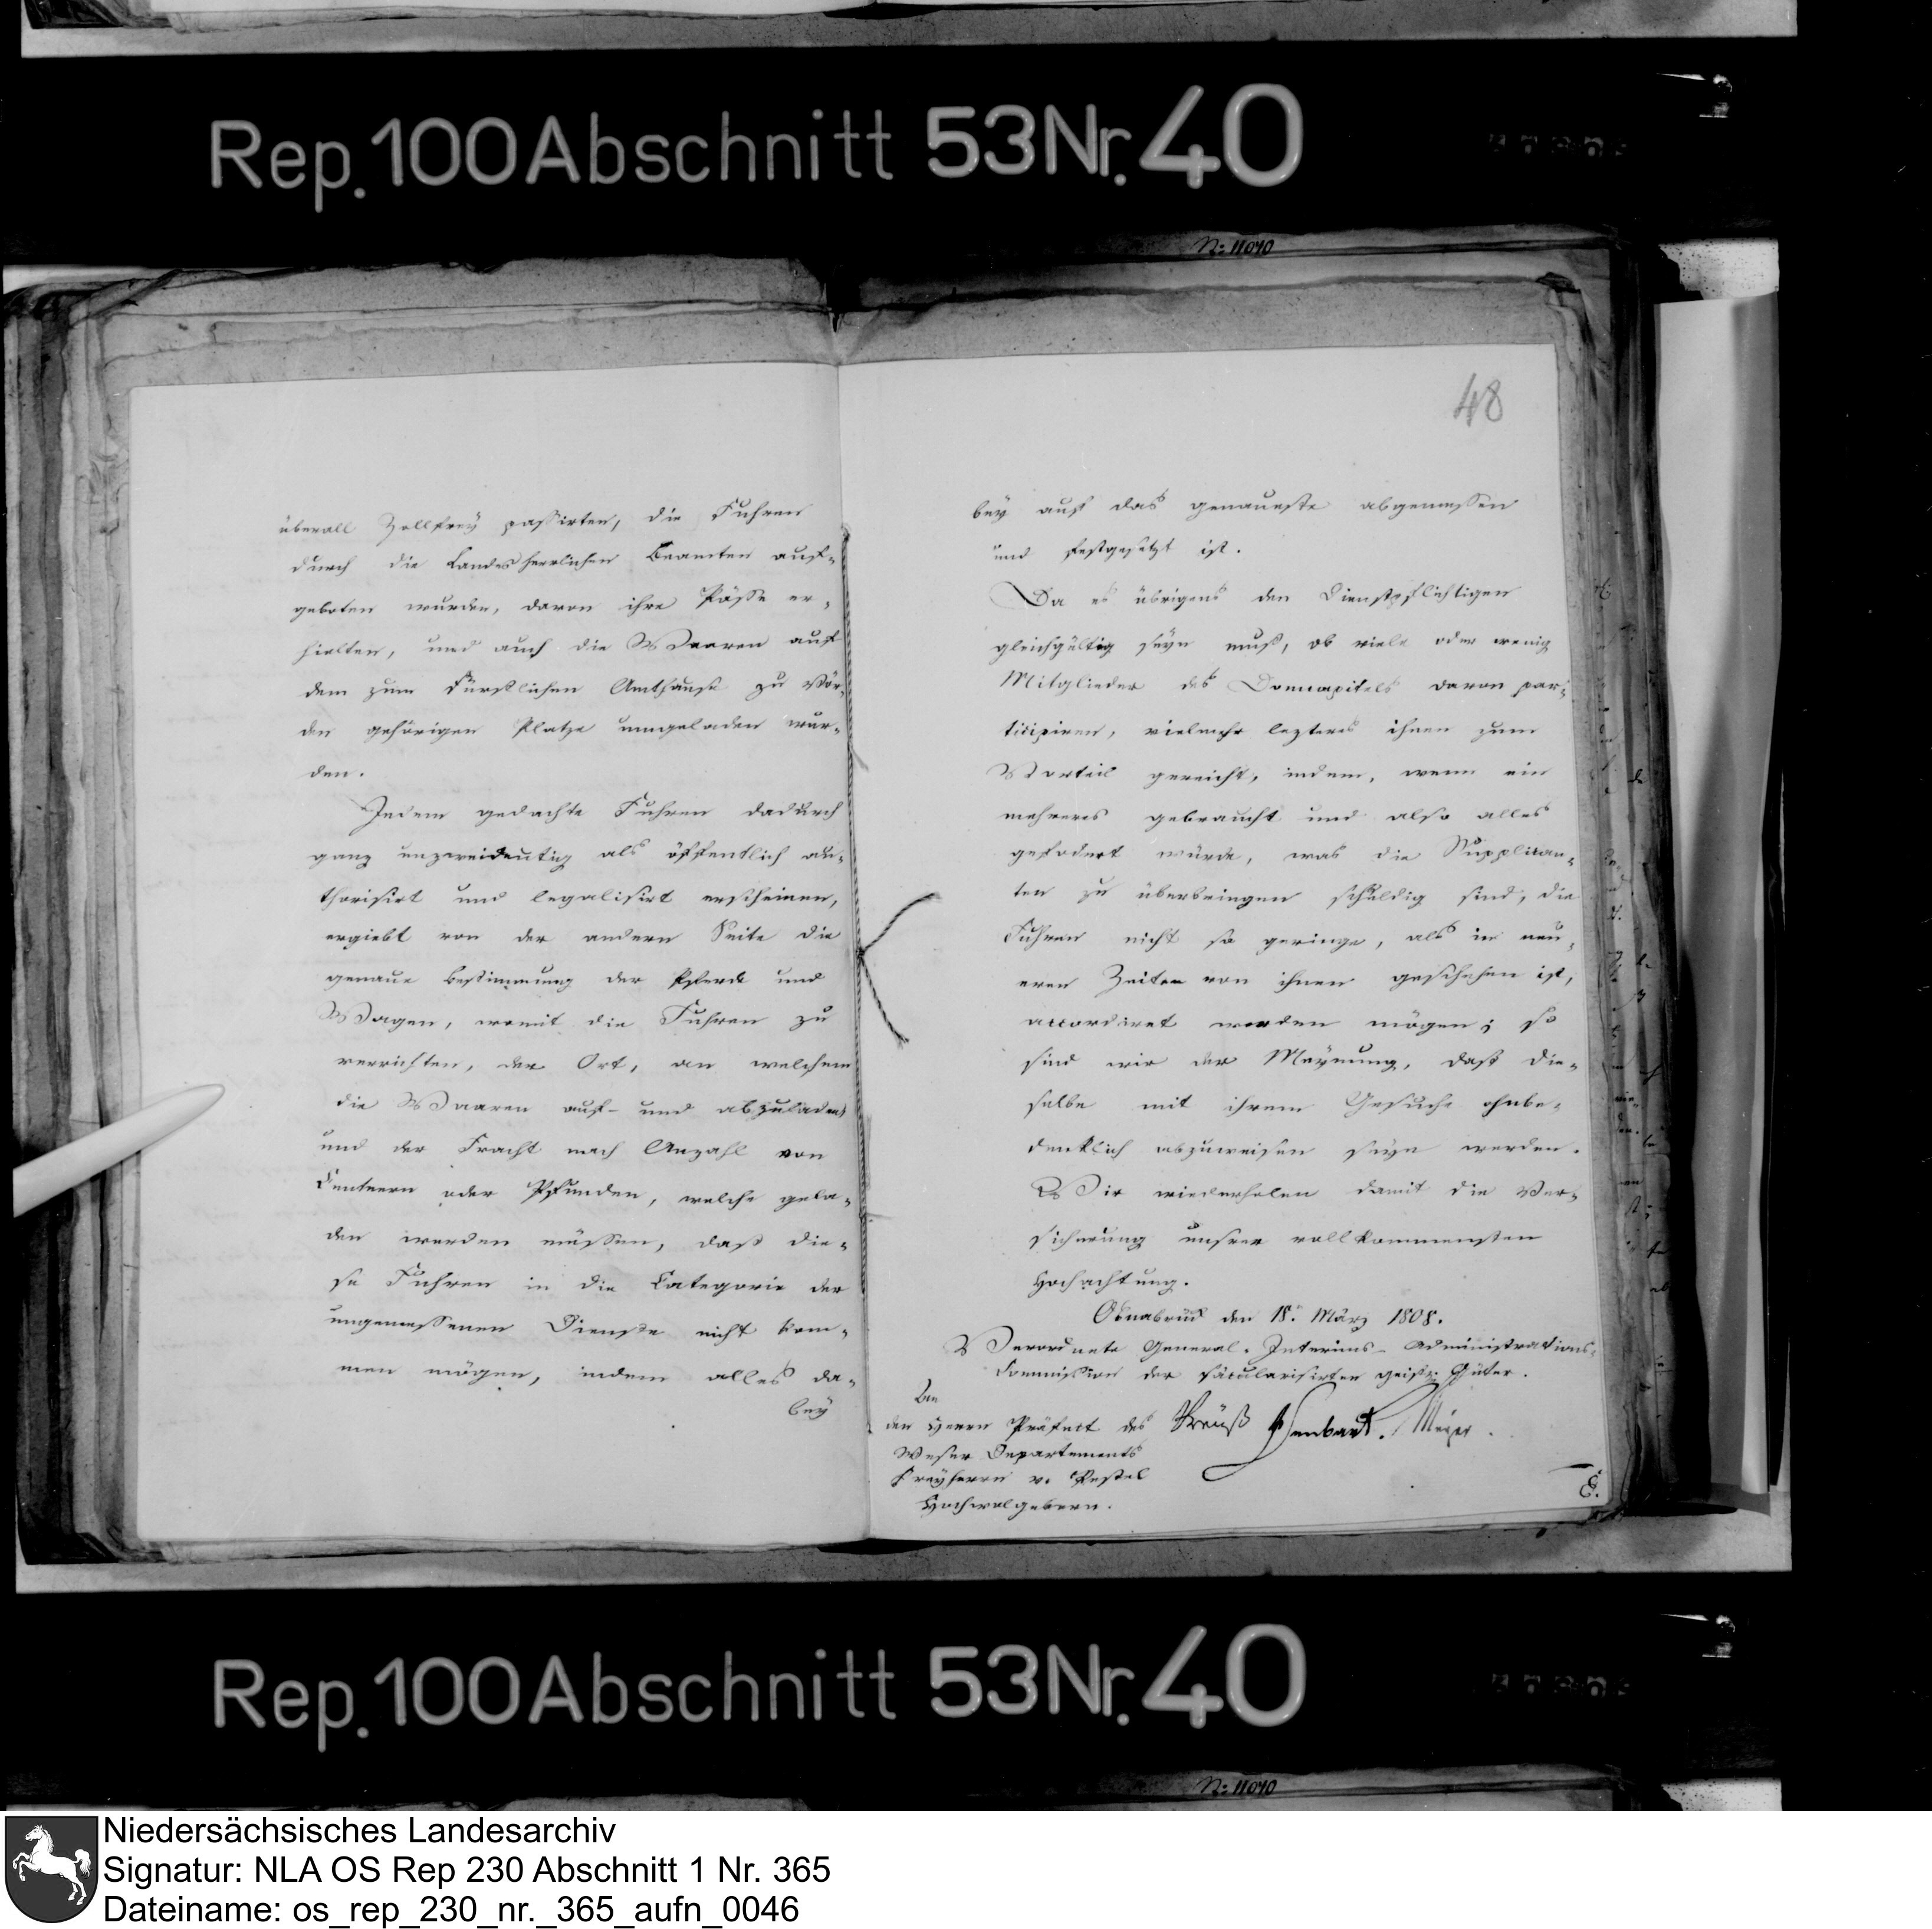 Rep. 100 Abschnitt 53 Nr. 40
N: 11040
48
überall Zollfrey passirten, die Fuhren
durch die Landesherrlichen Beamten auf-
geboten wurden, davon ihre Pässe er-
hielten, und auch die Waaren auf
dem zum Fürstlichen Amthause zu Vör-
den gehörigen Platze umgeladen wur-
den.
Indem gedachte Fuhren dadurch
ganz unzweideutig als öffentlich au-
thorisirt und legalisirt erscheinen,
ergiebt von der andern Seite die
genaue Bestimmung der Pferde und
Wagen, womit die Fuhren zu
verrichten, der Ort, an welchem
die Waaren auf- und abzuladen
und der Fracht nach Anzahl von
Centnern oder Pfunden, welche gela-
den werden müssen, daß die-
se Fuhren in die Categorie der
ungemessenen Dienste nicht kom-
men mögen, indem alles da-
bey
bey auf das genaueste abgemessen
und festgesetzt ist.
Da es übrigens den Dienstpflichtigen
gleichgültig seyn muß, ob viele oder wenig
Mitglieder des Domcapitels davon par-
ticipiren, vielmehr lezteres ihnen zum
Vorteil gereicht, indem, wenn ein
mehreres gebraucht und also alles
gefodert würde, was die Supplican-
ten zu überbringen schuldig sind, die
Fuhren nicht so geringe, als in neu-
eren Zeiten von ihnen geschehen ist,
accordiret worden mögen; so
sind wir der Meynung, daß die-
selbe mit ihrem Gesuche ohnbe-
denklich abzuweisen seyn werden.
Wir wiederholen damit die Ver-
sicherung unsrer vollkommensten
Hochachtung.
Osnabrück den 18. März 1808.
Verordnete General-Interims-Administrations-
Commission der säcularisirten geistl. Güter.
An
den Herrn Präfect des Struß Meyer.
Weser Departements
Freyherrn v. Pestel
Hochwolgebern.
Rep. 100 Abschnitt 53 Nr. 40
N: 11040
Niedersächsisches Landesarchiv
Signatur: NLA OS Rep 230 Abschnitt 1 Nr. 365
Dateiname: os_rep_230_nr._365_aufn_0046